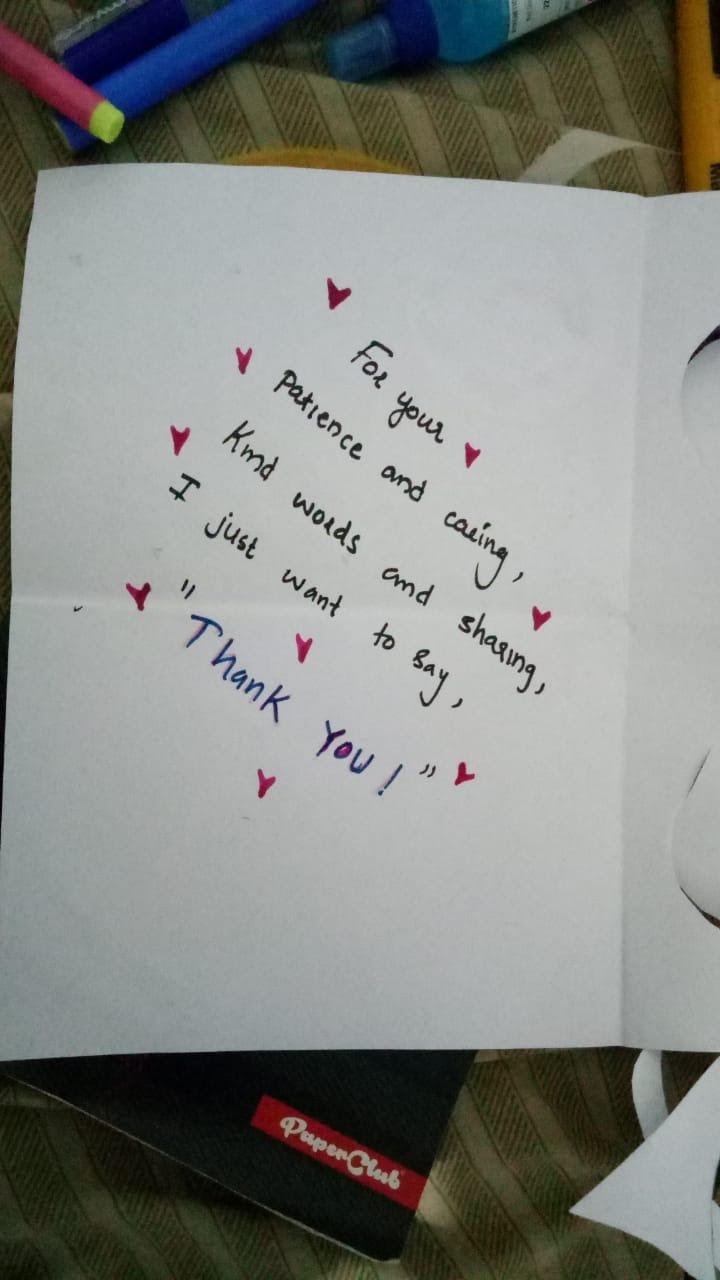 For your
Patience and caring,
Kind words and sharing,
I just want to say,
"Thank You!"
PaperClub